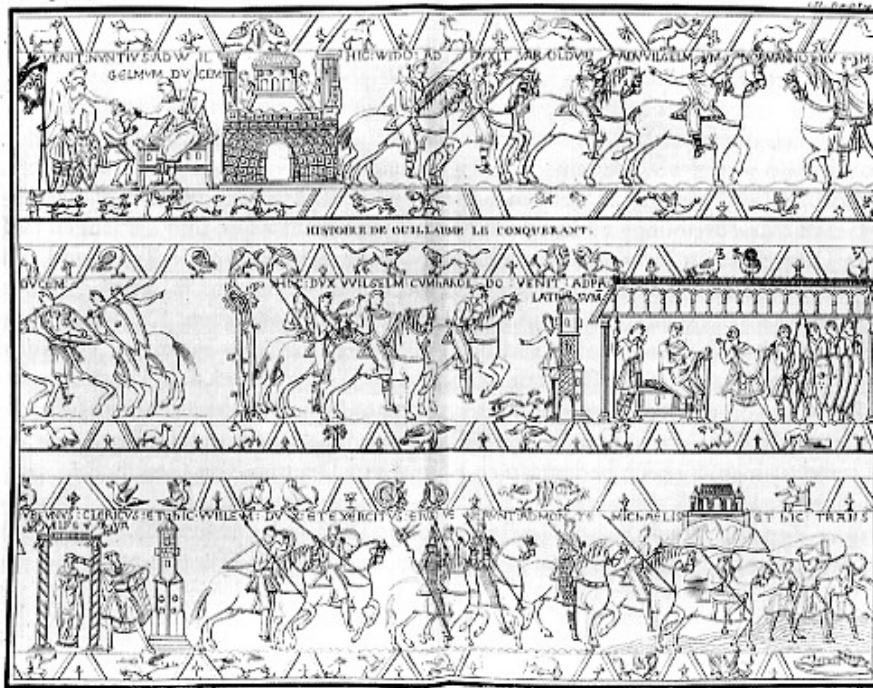 VENIT: NVNTIVS: AD WIL
GELMVM DVCEM
HIC: WIDO: AD DVXIT hAROLDVM ADVVILGELMVM: NORMANNORVM:
HISTOIRE DE GUILLAUME LE CONQUERANT
DVCEM
HIC: DVX VVILGELM: CVM hAROL DO: VENIT: AD PA
LATIV SVM
VBI: VNVS: CLERICVS: ET:
hIC: WILLEM: DVX: ET EXERCITVS: EIVS: VENERVNT: AD MONTE MIChAELIS
ET hIC: TRANS